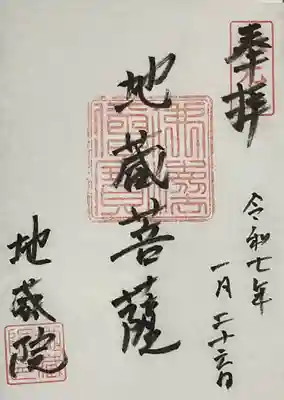 奉拝
令和七年
一月二十六日
地蔵菩薩
地蔵院